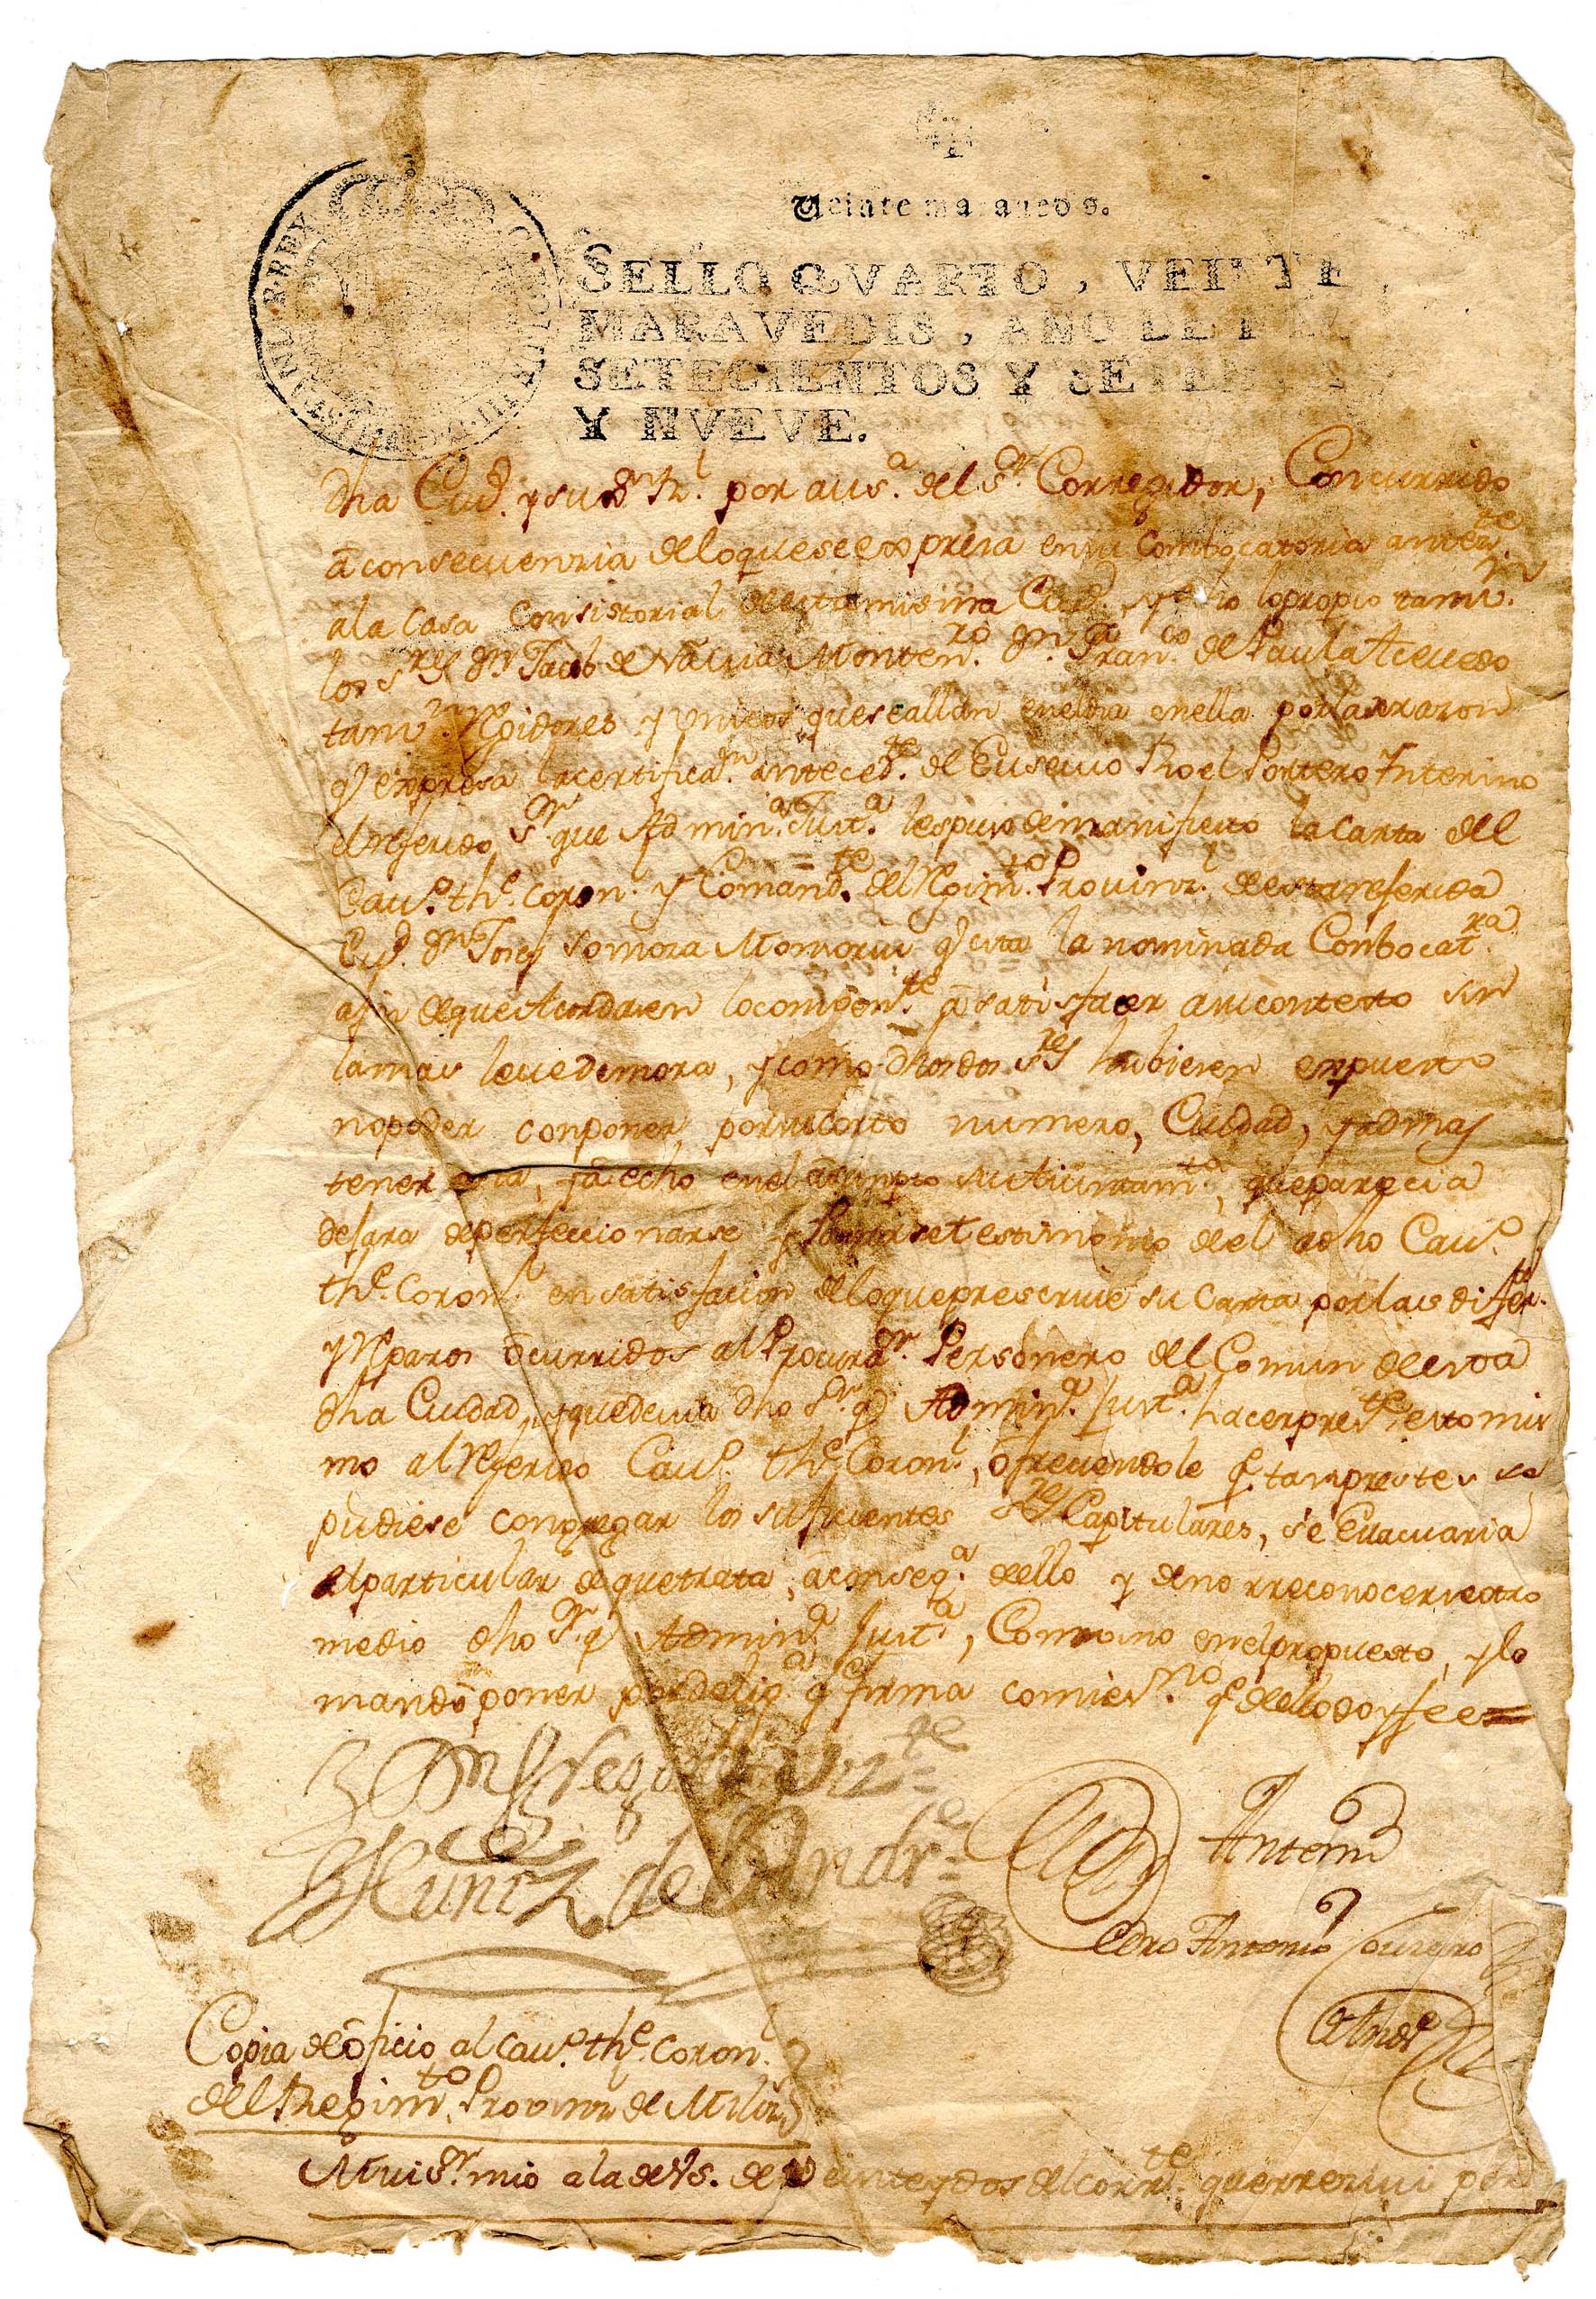 Veinte maravedis.
SELLO QVARTO, VEINTE
MARAVEDIS, AÑO DE MIL
SETECIENTOS Y SETEN
Y NVEVE.
dha Ciud. y su por aus.ª del S.or Corregidor, Concurrido
a consecuenzia de loque se expresa en su Combocatoria antez.te
ala Casa Consistorial de esta misma Ciud. y dho lopropio tamv.n
los S.res dn Jacob de Navia Monten.ro dn Fran.co de Paula Acevedo
tamv.n Rexidores y unicos que se allan enel dia enella por la rrazon
q.e expresa la certificaz.n anteced.te de Eusevio Roel Portero Interino
el referido S.or que Admin.ª Just.ª les puso demanifiesto la Carta del
Cav.o th.e Coron.l y Comand.te del Rexim.to Provinz.l de esta referida
Ciud. dn Josef Somoza Monsoriu q.e cita la nominada Conbocat.ra
afin de que Acordasen locombén.te a satisfacer asu contexto sin
la mas leve demora, y como dhos dos S.res hubiesen expuesto
no poder componer, por su corto numero, Ciudad, y ademas
tener esta, ya echo enel asumpto su Ayuntam.to, que parecia
dejara deperfeccionarse y Ponerse testimonio de el adho Cav.o
th.e Coron.l en satisfacion de loque prescrive su Carta por las difer.s
y Reparos ocurridos al Procurad.r Personero del Comun de esta
dha Ciudad, y que devia dho S.r q.e Admin.ª Just.ª hacer pres.te esto mis
mo al Referido Cav.o th.e Coron.l, ofreciendole q.e tan presto se
pudiese congregar los suficientes S.res Capitulares, se Evacuaria
el particular de que trata, a conseq.ª dello y de no rreconocerse otro
medio dho S.r q.e Admin.ª Just.ª, Combino enel propuesto, y lo
mando poner por dilig.ª q.e firma comi es.no q.e de ello doy fee=
Muñiz de Andr.e
Antemi
Pedro Antonio
Andr.e
Copia de oficio al Cav.o th.e Coron.l
del Regim.to Provinz.l de Miliz.s
Mui S.r mio ala de Vs. de veinte y dos del corr.te que rrezivi por